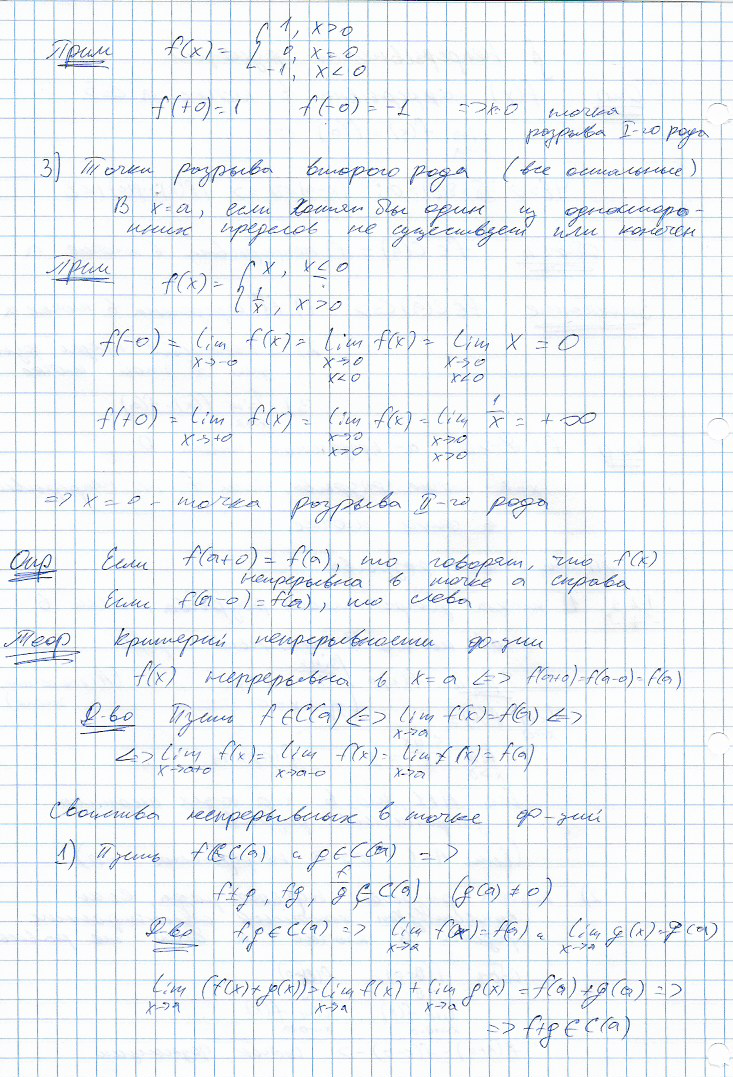 Прим f(x) = { 1, x>0
0, x=0
-1, x<0
f(+0)=1 f(-0)=-1 => x=0 точка
розрыва I-го рода
3) Точки розрыва второго рода (все остальные)
В x=a, если хотя бы один из односторо-
нних пределов не существует или конечен
Прим f(x) = { x, x≤0
1/x, x>0
f(-0) = lim x→-0 f(x) = lim x→0 x<0 f(x) = lim x→0 x<0 x = 0
f(+0) = lim x→+0 f(x) = lim x→0 x>0 f(x) = lim x→0 x>0 1/x = +∞
=> x=0 - точка розрыва II-го рода
Опр Если f(a+0) = f(a), то говорят, что f(x)
непрерывна в точке a справа
Если f(a-0)=f(a), то слева
Теор Критерий непрерывности ф-ции
f(x) непрерывна в x=a <=> f(a+0)=f(a-0)=f(a)
Д-во Пусть f∈C(a) <=> lim x→a f(x)=f(a) <=>
<=> lim x→a+0 f(x) = lim x→a-0 f(x) = lim x→a f(x) = f(a)
Свойства непрерывных в точке ф-ций
1) Пусть f∈C(a) и g∈C(a) =>
f±g, fg, f/g ∈ C(a) (g(a)≠0)
Д-во f,g∈C(a) => lim x→a f(x)=f(a) и lim x→a g(x)=g(a)
lim x→a (f(x)+g(x)) = lim x→a f(x) + lim x→a g(x) = f(a)+g(a) =>
=> f+g∈C(a)